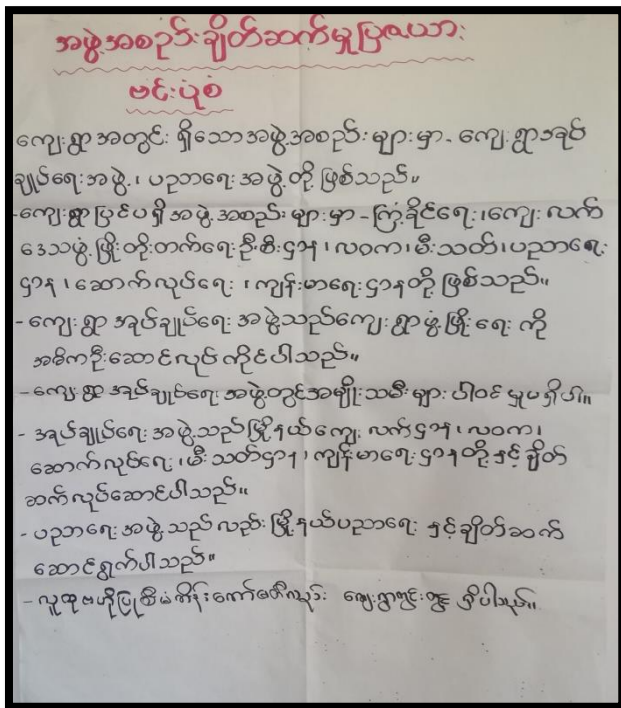 အဖွဲ့အစည်းချိတ်ဆက်မှုပြဇယား
ဗင်းပုံစံ
ကျေးရွာအတွင်း ရှိသောအဖွဲ့အစည်းများမှာ - ကျေးရွာအုပ်
ချုပ်ရေးအဖွဲ့ ၊ ပညာရေးအဖွဲ့တို့ဖြစ်သည်။
-ကျေးရွာပြင်ပရှိအဖွဲ့အစည်းများမှာ - ကြံ့ခိုင်ရေး ၊ကျေးလက်
ဒေသဖွံ့ဖြိုးတိုးတက်ရေးဦးစီးဌာန ၊ လဝက ၊ မီးသတ် ၊ ပညာရေး
ဌာန ၊ ဆောက်လုပ်ရေး ၊ ကျန်းမာရေးဌာနတို့ဖြစ်သည်။
- ကျေးရွာအုပ်ချုပ်ရေးအဖွဲ့သည်ကျေးရွာဖွံ့ဖြိုးရေးကို
အဓိကဦးဆောင်လုပ်ကိုင်ပါသည်။
- ကျေးရွာအုပ်ချုပ်ရေးအဖွဲ့တွင်အမျိုးသမီးများ ပါဝင်မှုမရှိပါ။
- အုပ်ချုပ်ရေးအဖွဲ့သည်မြို့နယ်ကျေးလက်ဌာန ၊ လဝက ၊
ဆောက်လုပ်ရေး ၊ မီးသတ်ဌာန ၊ ကျန်းမာရေးဌာနတို့နှင့်ချိတ်
ဆက်လုပ်ဆောင်ပါသည်။
- ပညာရေးအဖွဲ့သည်လည်းမြို့နယ်ပညာရေးနှင့်ချိတ်ဆက်
ဆောင်ရွက်ပါသည်။
- လူထုဗဟိုပြုစီမံကိန်းကော်မတီလည်း ကျေးရွာတွင်းတွင် ရှိပါသည်။